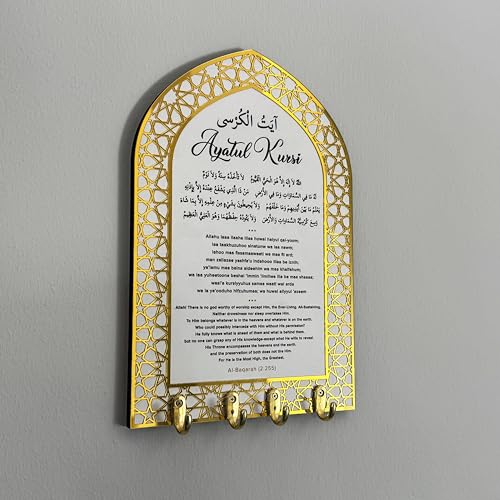 آيَتُ الْكُرْسِى
Ayatul Kursi
اَللّٰهُ لَا اِلٰهَ اِلَّا هُوَ الْحَيُّ الْقَيُّومُ لَا تَأْخُذُهُ سِنَةٌ وَلَا نَوْمٌ
لَهُ مَا فِي السَّمَاوَاتِ وَمَا فِي الْاَرْضِ مَنْ ذَا الَّذِي يَشْفَعُ عِنْدَهُ اِلَّا بِاِذْنِهِ
يَعْلَمُ مَا بَيْنَ اَيْدِيهِمْ وَمَا خَلْفَهُمْ وَلَا يُحِيطُونَ بِشَيْءٍ مِنْ عِلْمِهِ اِلَّا بِمَا شَاءَ
وَسِعَ كُرْسِيُّهُ السَّمَاوَاتِ وَالْاَرْضَ وَلَا يَؤُدُهُ حِفْظُهُمَا وَهُوَ الْعَلِيُّ الْعَظِيمُ
***
Allahu laaa ilaaha illaa huwal haiyul qai-yoom;
laa taakhuzuhoo sinatunw wa laa nawm;
lahoo maa fissamaawaati wa maa fil ard;
man zallazee yashfa'u indahooo illaa be iznih;
ya'lamu maa baina aideehim wa maa khalfahum;
wa laa yuheetoona beshai 'immin 'ilmihee illa be maa shaaaa;
wasi'a kursiyyuhus samaa waati wal arda
wa la ya'ooduho hifzuhumaa; wa huwal aliyyul 'azeem
***
Allah! There is no god worthy of worship except Him, the Ever-Living, All-Sustaining.
Neither drowsiness nor sleep overtakes Him.
To Him belongs whatever is in the heavens and whatever is on the earth.
Who could possibly intercede with Him without His permission?
He fully knows what is ahead of them and what is behind them,
but no one can grasp any of His knowledge-except what He wills to reveal.
His Throne encompasses the heavens and the earth,
and the preservation of both does not tire Him.
For He is the Most High, the Greatest.
Al-Baqarah (2:255)